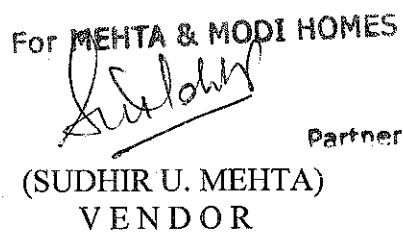 For MEHTA & MODI HOMES
Partner
(SUDHIR U. MEHTA)
VENDOR